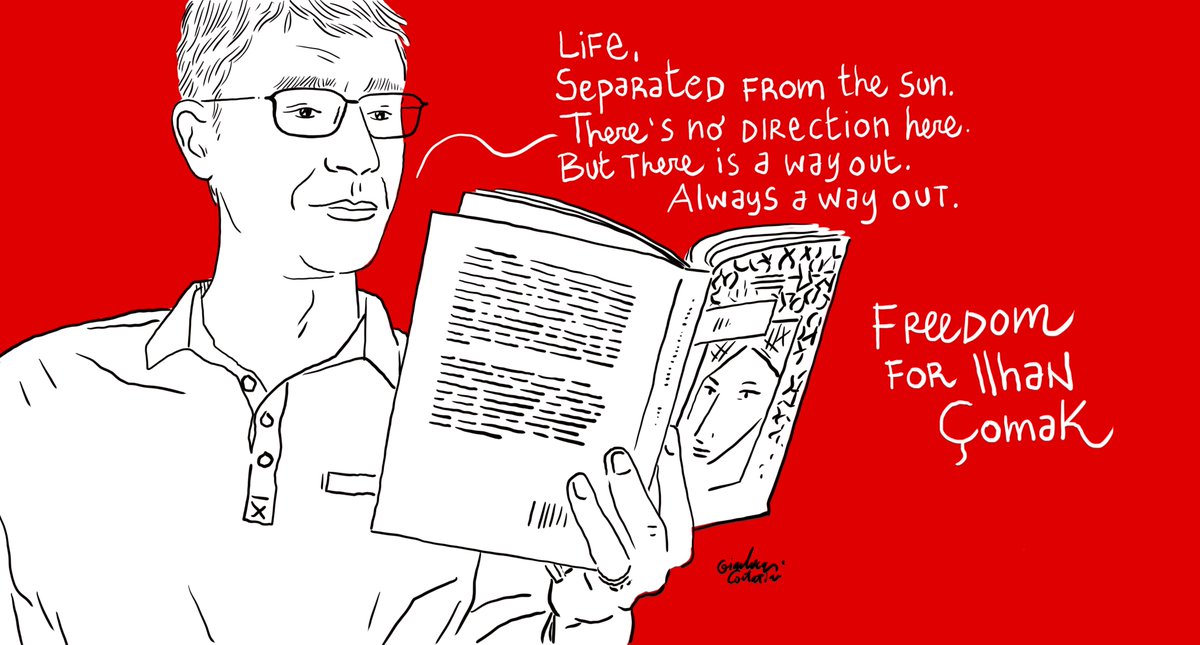 Life,
Separated from the sun.
There's no direction here.
But there is a way out.
Always a way out.
Freedom
for Ilhan
Çomak